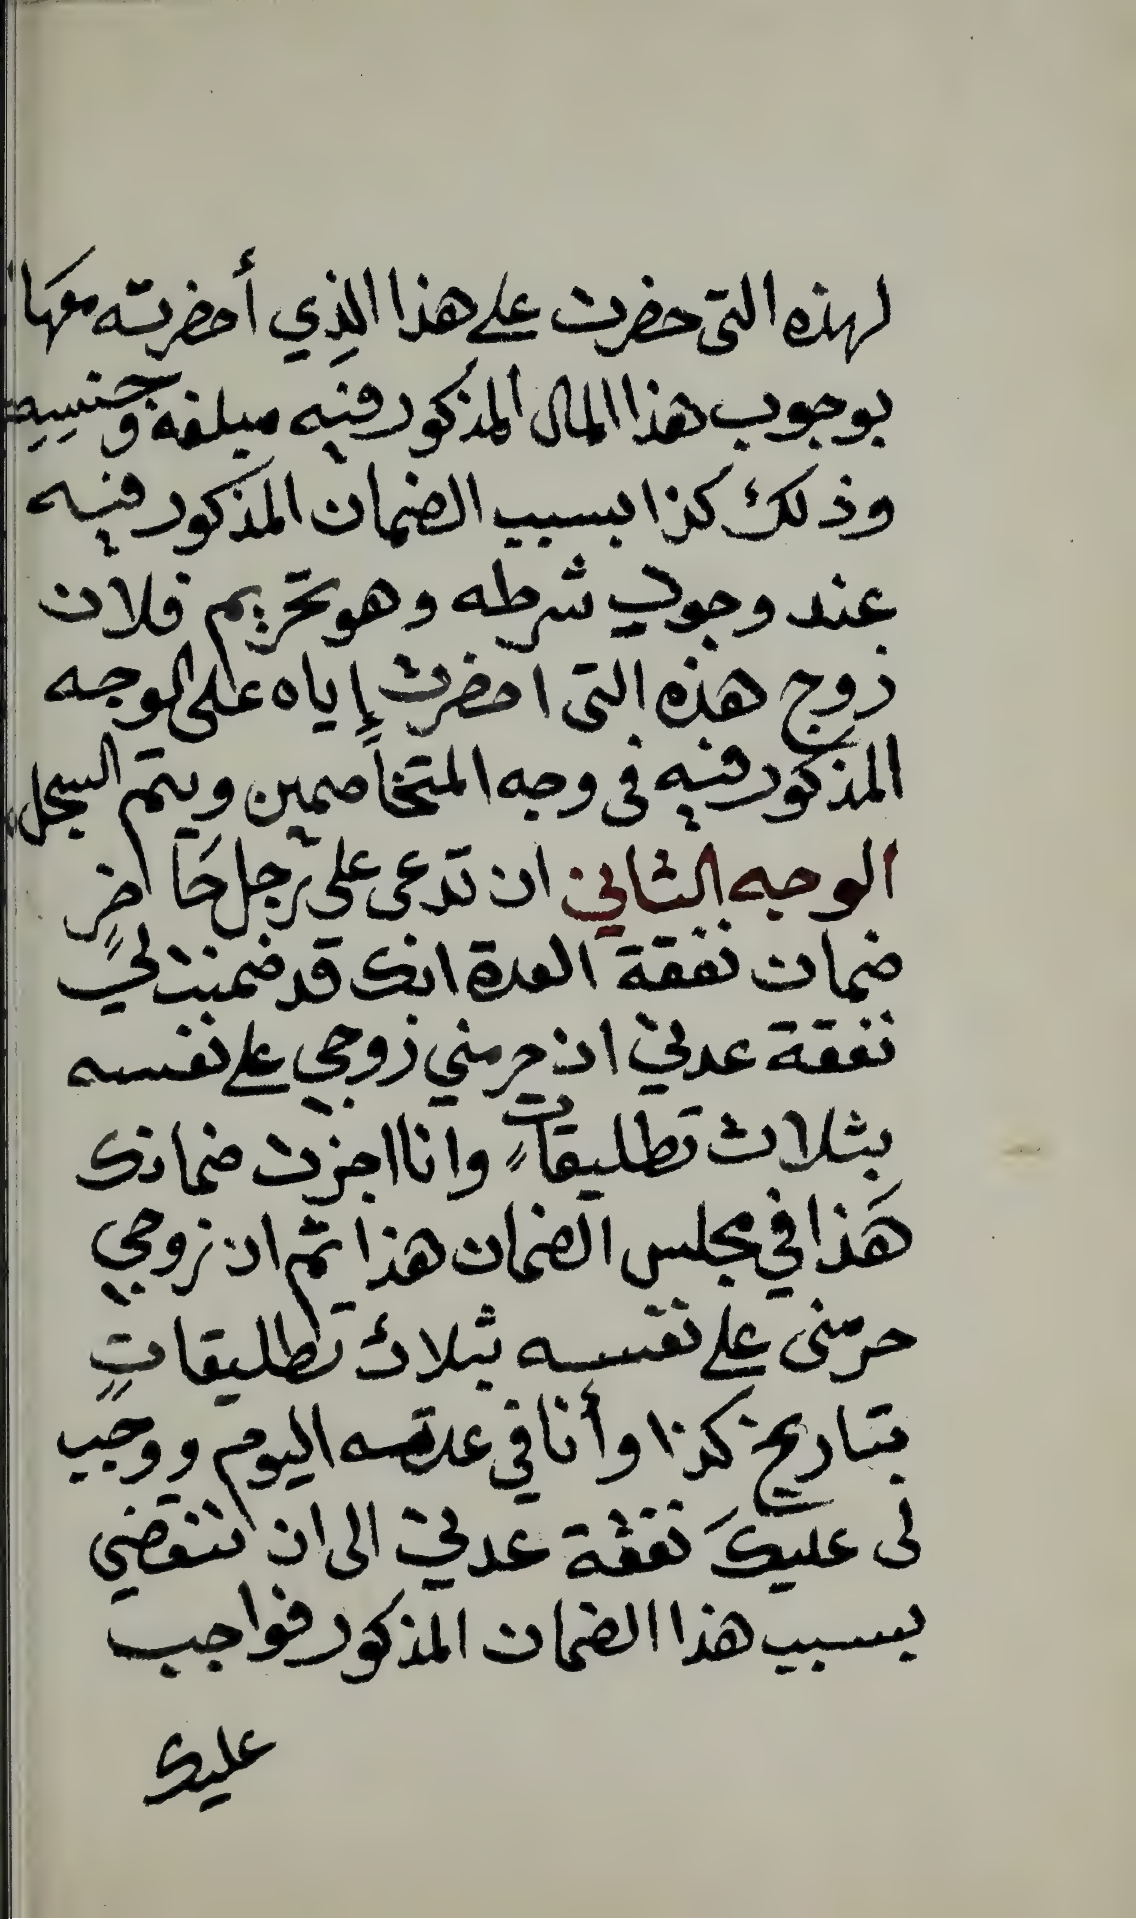 لهذه التى حضرت على هذا الذي أحضرته معها
بوجوب هذا المال المذكور فيه مبلغه وجنسه
وذلك كذا بسبب الضمان المذكور فيه
عند وجود شرطه وهو تحريم فلان
زوج هذه التى احضرت إياه على الوجه
المذكور فيه فى وجه المتخاصمين ويتم السجل
الوجه الثاني ان تدعى على رجل حَاضرٍ
ضمان نفقة العدة انك قد ضمنت لي
نفقة عدتي ان حرمني زوجي على نفسه
بثلاث تطليقاتٍ وانا اجزت ضمانك
هَذا في مجلس الضمان هذا ثم ان زوجي
حرمنى على نفسه بثلاث تطليقاتٍ
بتاريخ كذا وأنا في عدته اليوم ووجب
لى عليكَ نفقة عدتي الى ان تنقضي
بسبب هذا الضمان المذكور فواجب
عليك